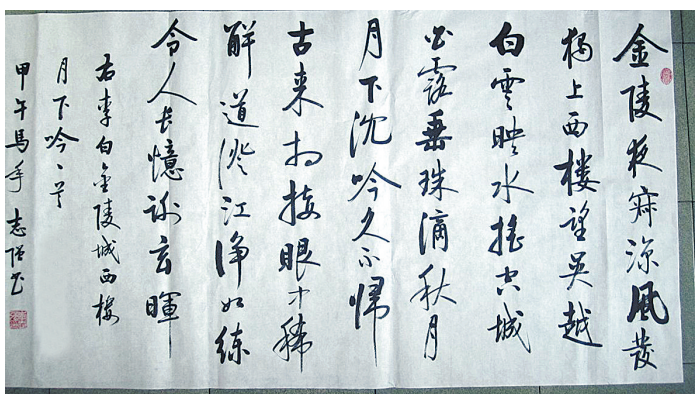 金陵夜寂涼風發
獨上西楼望吴越
白雲映水摇空城
白露垂珠滴秋月
月下沈吟久不歸
古来相接眼中稀
解道澄江淨如練
令人長憶謝玄暉
右李白金陵城西樓
月下吟
甲午馬年 志